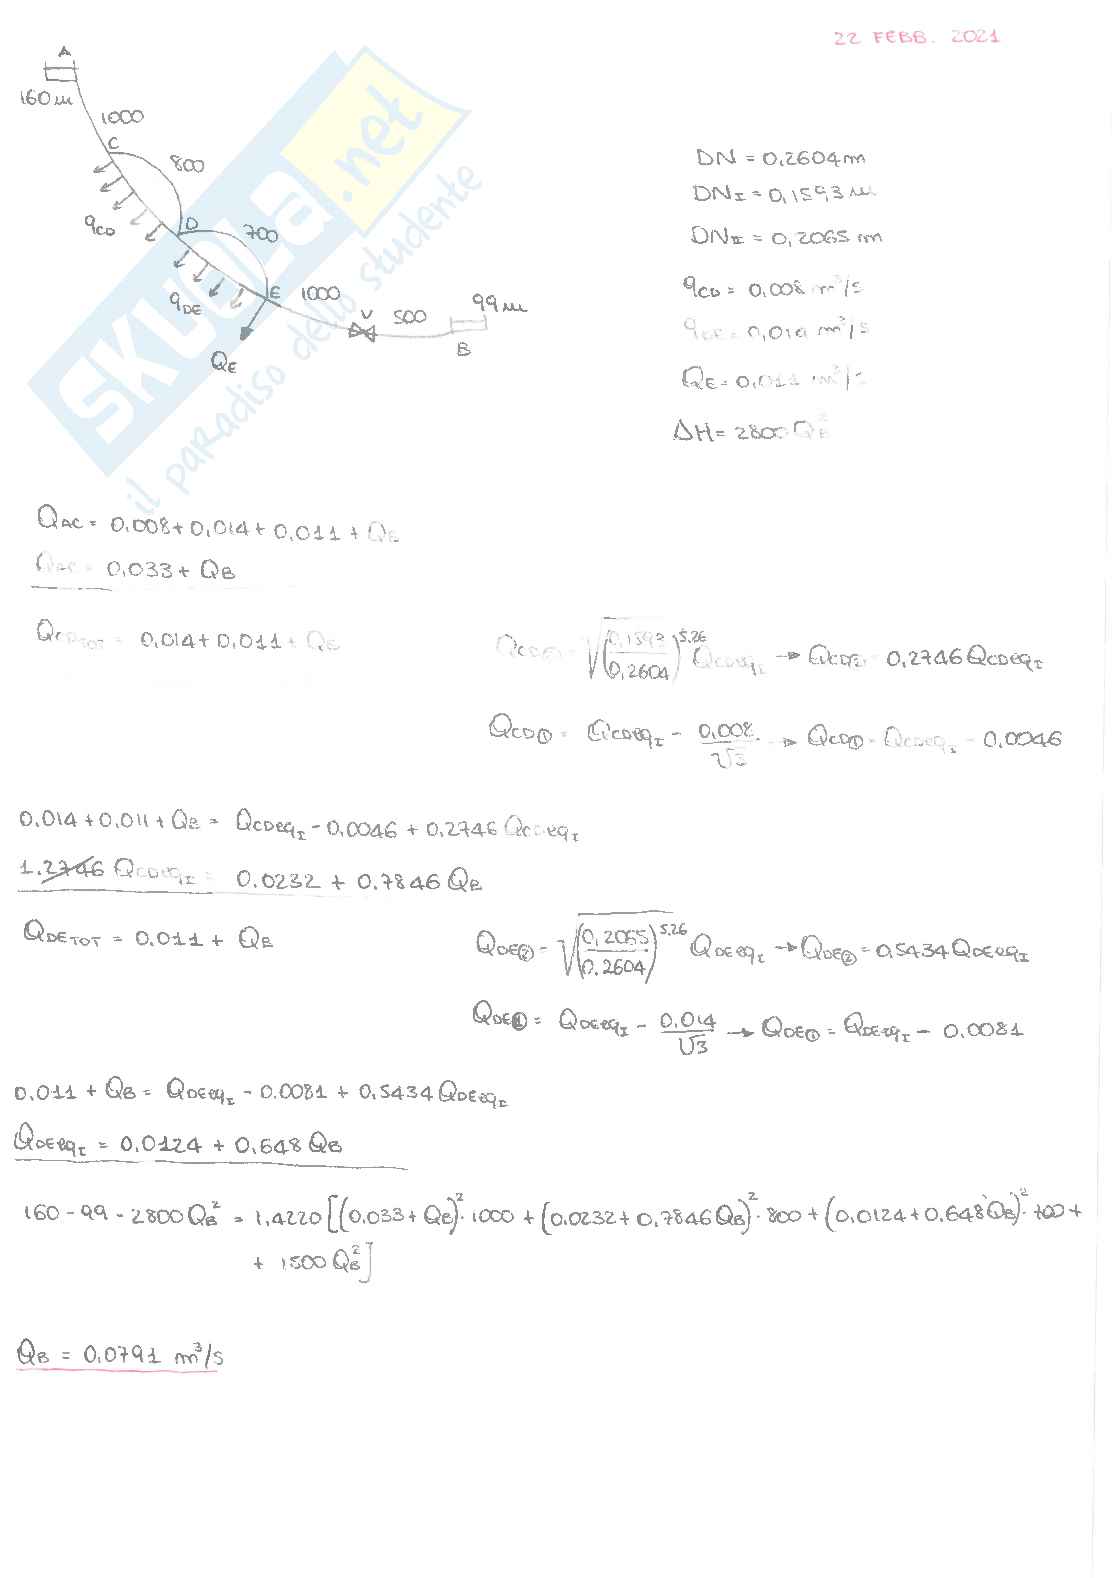 22 FEBB. 2021
A
160 m
1000
C
800
qCD
D
700
qDE
E
1000
V
500
99 m
B
QE
SKUOLA.net
il paradiso dello studente
DN = 0,2604 m
DN I = 0,1593 m
DN II = 0,2065 m
qCD = 0.008 m³/s
qDE = 0,014 m³/s
QE = 0,011 m³/s
ΔH = 2800 QB²
QAC = 0,008 + 0,014 + 0,011 + QB
QAC = 0,033 + QB
QCDTOT = 0,014 + 0,011 + QB
QCD② = √(0,1593/0,2604)^5.26 QCDeqI → QCD② = 0,2746 QCDeqI
QCD① = QCDeqI - 0,008/√3 → QCD① = QCDeqI - 0,0046
0,014 + 0,011 + QB = QCDeqI - 0,0046 + 0,2746 QCDeqI
1.2746 QCDeqI = 0.0232 + 0.7846 QB
QDETOT = 0.011 + QB
QDE② = √(0,2065/0.2604)^5.26 QDEeqI → QDE② = 0,5434 QDEeqI
QDE① = QDEeqI - 0,014/√3 → QDE① = QDEeqI - 0,0081
0,011 + QB = QDEeqI - 0.0081 + 0,5434 QDEeqI
QDEeqI = 0,0124 + 0,648 QB
160 - 99 - 2800 QB² = 1,4220 [(0,033 + QB)² · 1000 + (0.0232 + 0,7846 QB)² · 800 + (0,0124 + 0,648 QB)² · 700 +
+ 1500 QB²]
QB = 0,0791 m³/s